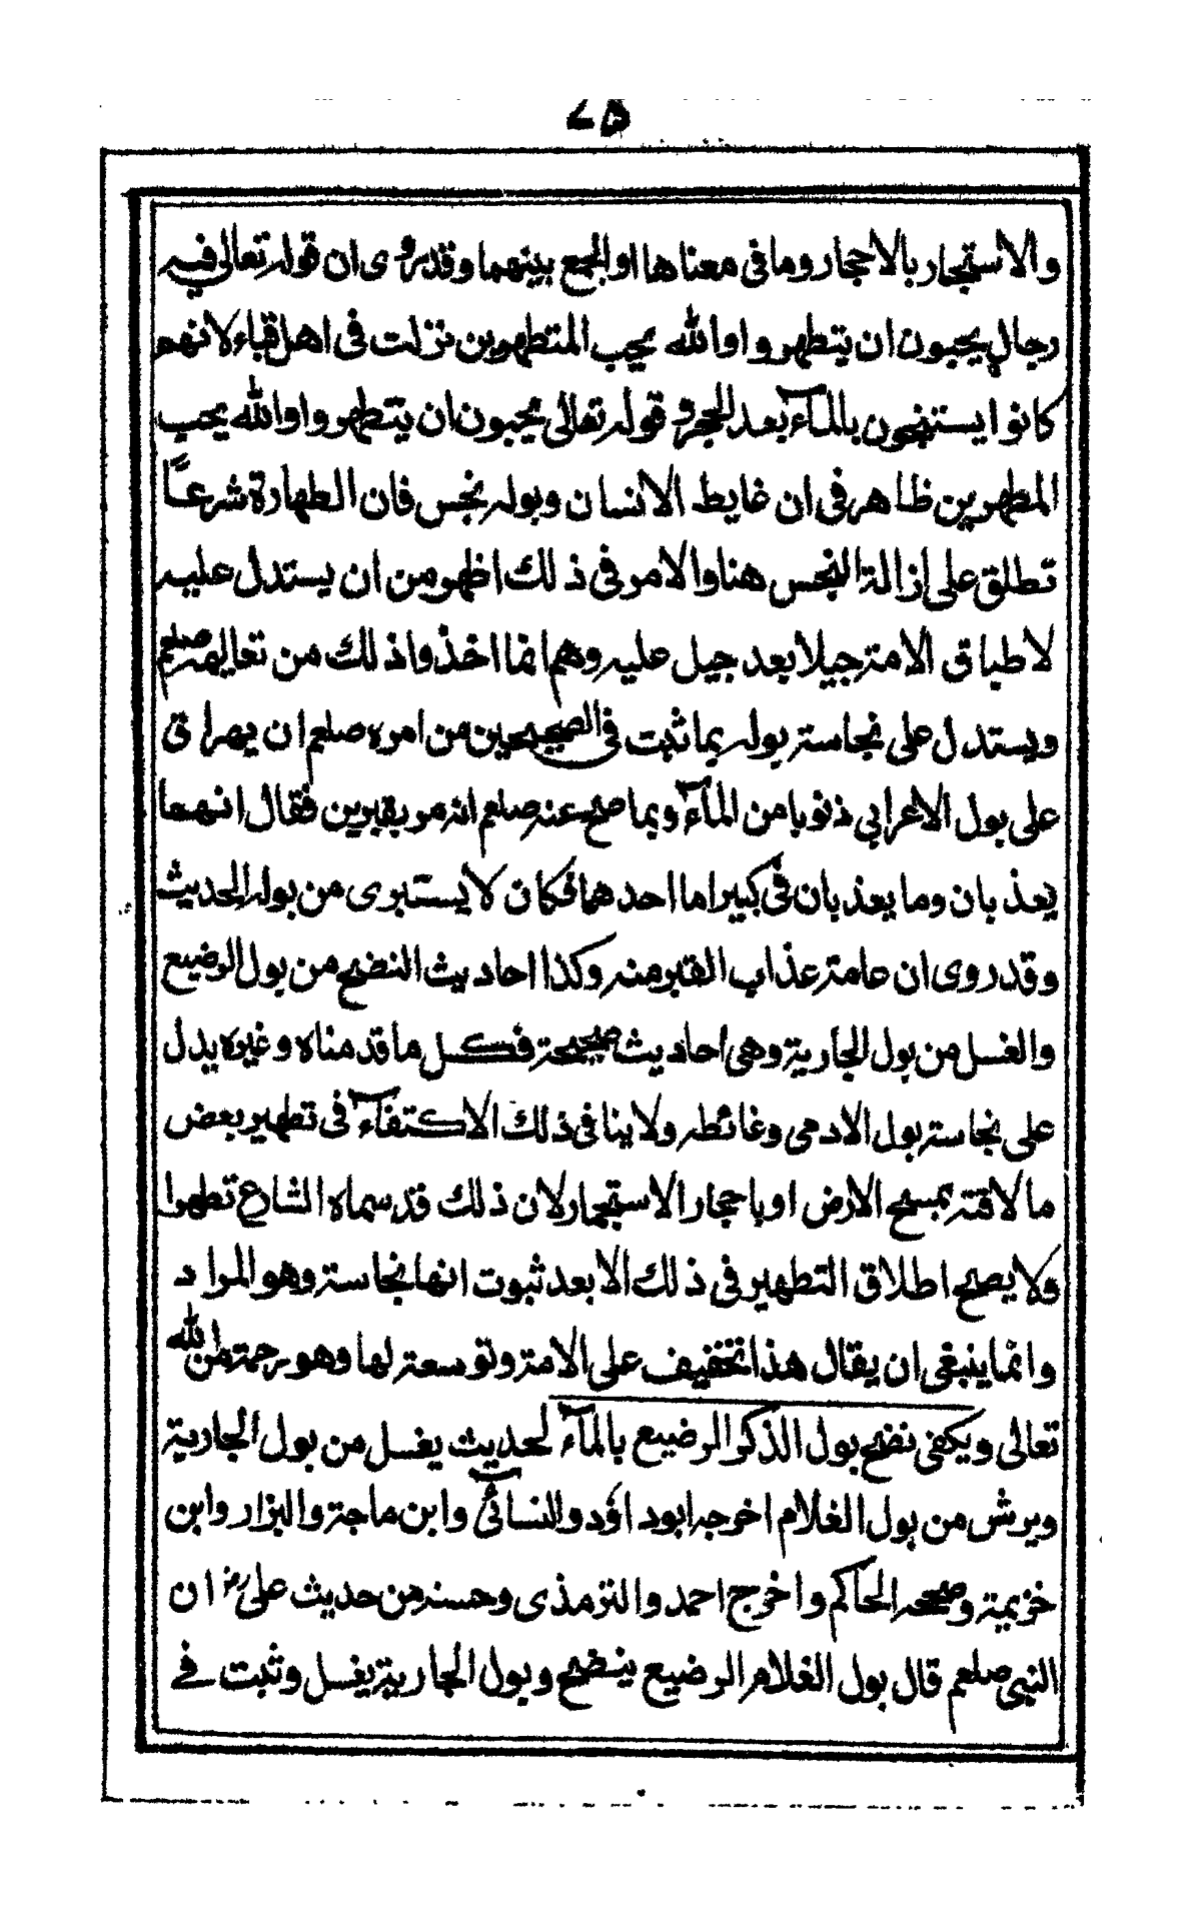 والاستجمار بالاحجار وما فى معناها او الجمع بينهما وقد روى ان قوله تعالى فيه
رجال يحبون ان يتطهروا والله يحب المتطهرين نزلت فى اهل قباء لانهم
كانوا يستنجون بالمآء بعد الحجر وقوله تعالى يحبون ان يتطهروا والله يحب
المطهرين ظاهر فى ان غايط الانسان وبوله نجس فان الطهارة شرعًا
تطلق على ازالة النجس هنا والامر فى ذلك اظهر من ان يستدل عليه
لاطباق الامة جيلا بعد جيل عليه وهم انما اخذوا ذلك من تعاليمه صلعم
ويستدل على نجاسة بوله بما ثبت فى الصحيحين من امره صلعم ان يهراق
على بول الاعرابي ذنوبا من المآء وبما صح عنه صلعم انه مر بقبرين فقال انهما
يعذبان وما يعذبان فى كبير اما احدهما فكان لا يستبرى من بوله الحديث
وقد روى ان عامة عذاب القبر منه وكذا احاديث النضح من بول الرضيع
والغسل من بول الجارية وهى احاديث صحيحة فكل ما قدمناه وغيره يدل
على نجاسة بول الادمى وغائطه ولا ينافى ذلك الاكتفآء فى تطهير بعض
ما لاقته بمسح الارض او باحجار الاستجمار لان ذلك قد سماه الشارع تطهيرا
ولا يصح اطلاق التطهير فى ذلك الا بعد ثبوت انها نجاسة وهو المراد
وانما ينبغى ان يقال هذا تخفيف على الامة وتوسعة لها وهو رحمة من الله
تعالى ويكفى نضح بول الذكر الرضيع بالمآء لحديث يغسل من بول الجارية
ويرش من بول الغلام اخرجه ابوداؤد والنسائى وابن ماجة والبزار وابن
خزيمة وصححه الحاكم واخرج احمد والترمذى وحسنه من حديث على رض ان
النبى صلعم قال بول الغلام الرضيع ينضح وبول الجارية يغسل وثبت فے